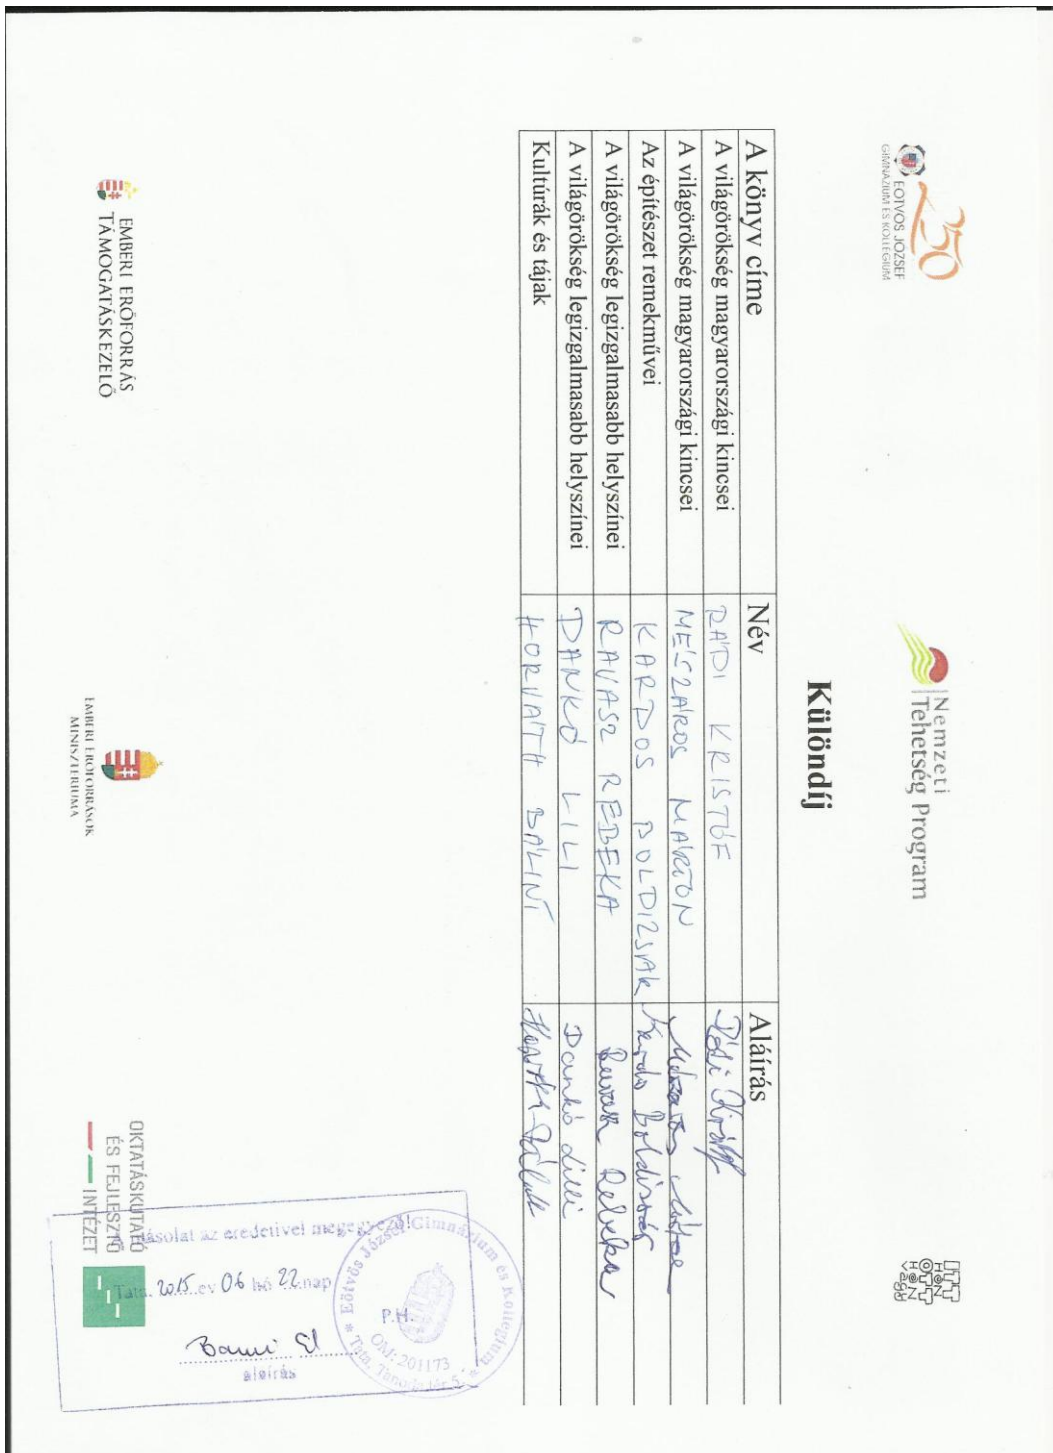 250
EÖTVÖS JÓZSEF
GIMNÁZIUM ÉS KOLLÉGIUM
Nemzeti
Tehetség Program
ITT
HON
OTT
HON
VAGY
Különdíj
A könyv címe Név Aláírás
A világörökség magyarországi kincsei RÁDI KRISTÓF Rádi Kristóf
A világörökség magyarországi kincsei MÉSZÁROS MÁRTON Mészáros Márton
Az építészet remekművei KARDOS BOLDIZSÁR Kardos Boldizsár
A világörökség legizgalmasabb helyszínei RAVASZ REBEKA Ravasz Rebeka
A világörökség legizgalmasabb helyszínei DANKÓ LILI Dankó Lilli
Kultúrák és tájak HORVÁTH BÁLINT Horváth Bálint
EMBERI ERŐFORRÁS
TÁMOGATÁSKEZELŐ
EMBERI ERŐFORRÁSOK
MINISZTÉRIUMA
OKTATÁSKUTATÓ
ÉS FEJLESZTŐ
INTÉZET
A másolat az eredetivel megegyező!
Tata, 2015 év 06 hó 22 nap
P.H.
aláírás
Eötvös József Gimnázium és Kollégium
OM: 201173
Tata, Tanoda tér 5.